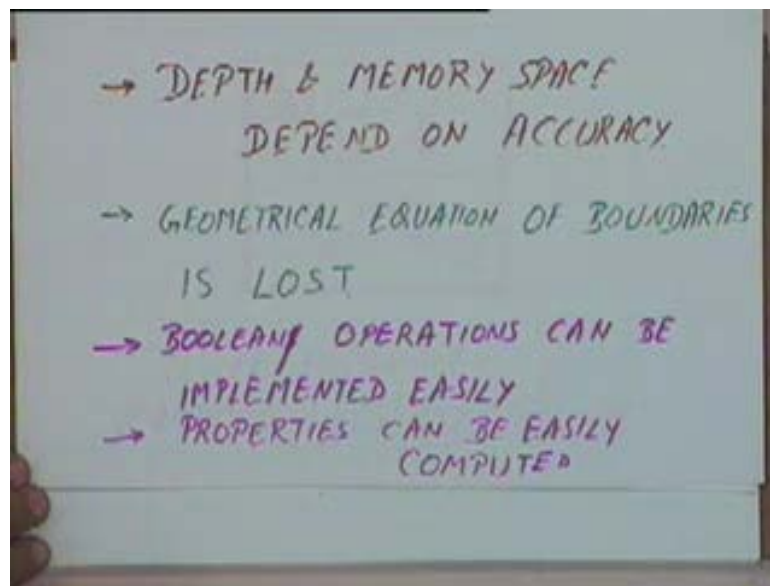 → DEPTH & MEMORY SPACE
DEPEND ON ACCURACY
→ GEOMETRICAL EQUATION OF BOUNDARIES
IS LOST
→ BOOLEAN OPERATIONS CAN BE
IMPLEMENTED EASILY
→ PROPERTIES CAN BE EASILY
COMPUTED